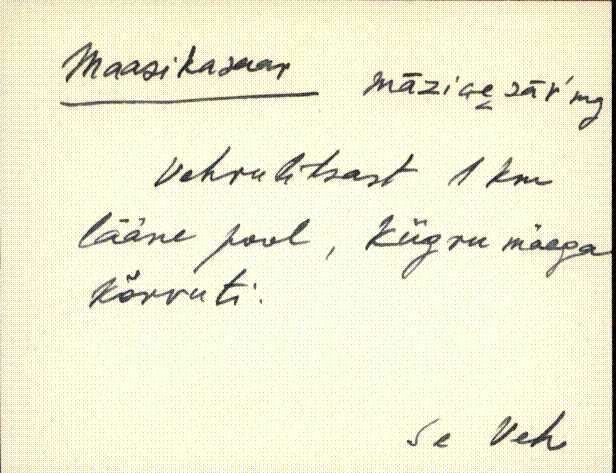 Maasikasaar māziɢe̮ sār' mg
Vehrulitsast 1 km
lääne pool, Kügru mäega
kõrvuti.
Se Veh